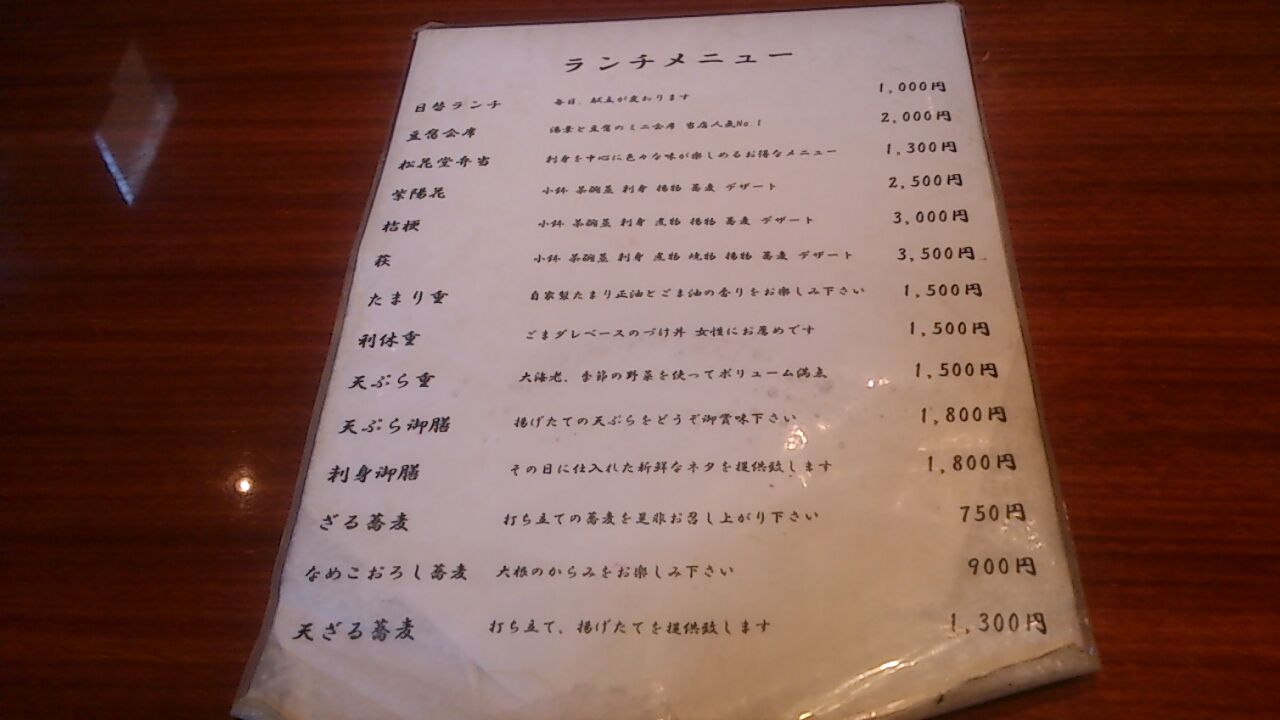 ランチメニュー
日替ランチ 毎日、献立が変わります 1,000円
豆腐会席 湯葉と豆腐のミニ会席 当店人気No.1 2,000円
松花堂弁当 刺身を中心に色々な味が楽しめるお得なメニュー 1,300円
紫陽花 小鉢 茶碗蒸 刺身 揚物 蕎麦 デザート 2,500円
桔梗 小鉢 茶碗蒸 刺身 煮物 揚物 蕎麦 デザート 3,000円
萩 小鉢 茶碗蒸 刺身 煮物 焼物 揚物 蕎麦 デザート 3,500円
たまり重 自家製たまり正油とごま油の香りをお楽しみ下さい 1,500円
利休重 ごまダレベースのづけ丼 女性にお薦めです 1,500円
天ぷら重 大海老、季節の野菜を使ってボリューム満点 1,500円
天ぷら御膳 揚げたての天ぷらをどうぞ御賞味下さい 1,800円
刺身御膳 その日に仕入れた新鮮なネタを提供致します 1,800円
ざる蕎麦 打ち立ての蕎麦を是非お召し上がり下さい 750円
なめこおろし蕎麦 大根のからみをお楽しみ下さい 900円
天ざる蕎麦 打ち立て、揚げたてを提供致します 1,300円